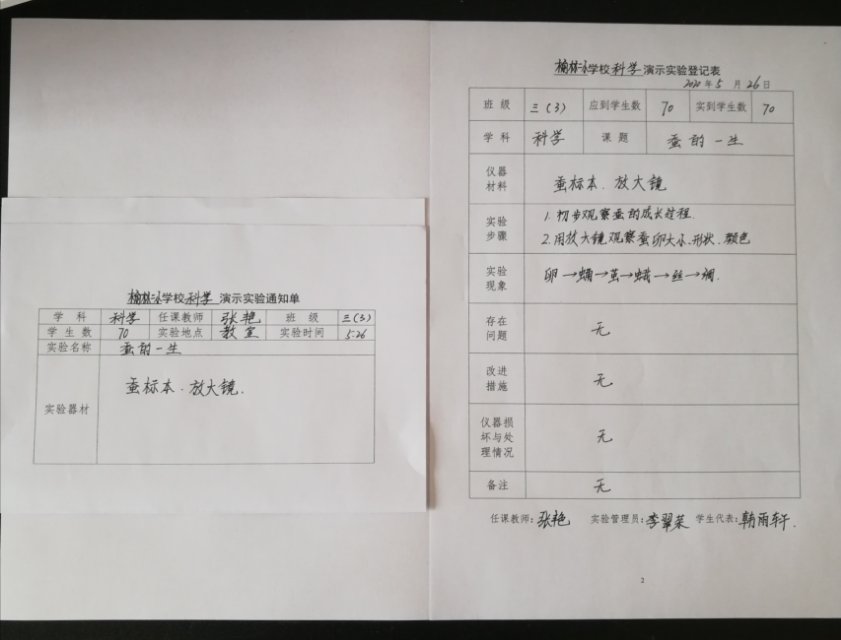 榆林二小学校科学演示实验通知单
学 科 科学 任课教师 张艳 班 级 三(3)
学 生 数 70 实验地点 教室 实验时间 5.26
实验名称 蚕的一生
实验器材 蚕标本.放大镜.
榆林二小学校科学演示实验登记表
2020年5月26日
班 级 三(3) 应到学生数 70 实到学生数 70
学 科 科学 课 题 蚕的一生
仪器
材料
蚕标本.放大镜
实验
步骤
1.初步观察蚕的成长过程.
2.用放大镜观察蚕卵大小、形状、颜色
实验
现象
卵→蛹→茧→蛾→丝→绸.
存在
问题
无
改进
措施
无
仪器损
坏与处
理情况
无
备注 无
任课教师:张艳 实验管理员:李翠荣 学生代表:韩雨轩.
2